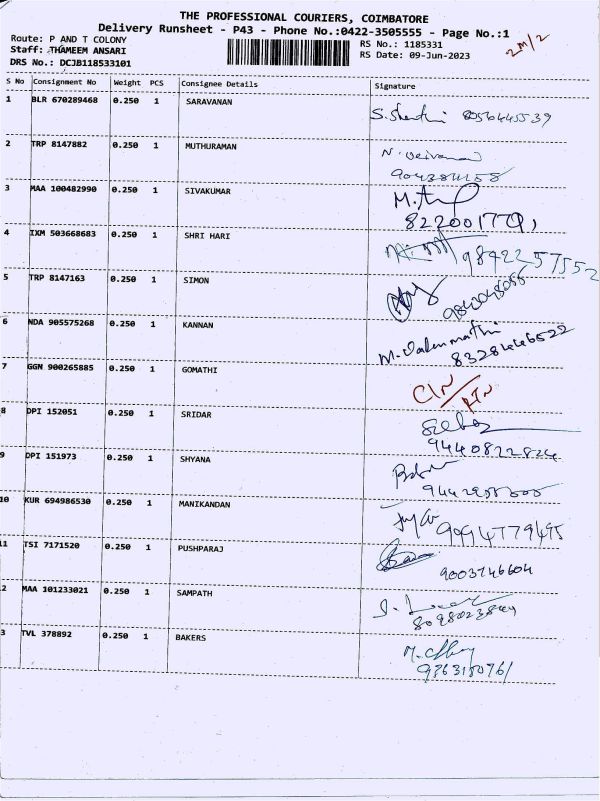 THE PROFESSIONAL COURIERS, COIMBATORE
Delivery Runsheet - P43 - Phone No.:0422-3505555 - Page No.:1
Route: P AND T COLONY RS No.: 1185331
Staff: THAMEEM ANSARI RS Date: 09-Jun-2023
DRS No.: DCJB118533101
S No Consignment No Weight PCS Consignee Details Signature
1 BLR 670289468 0.250 1 SARAVANAN 8056445539
2 TRP 8147882 0.250 1 MUTHURAMAN
3 MAA 100482990 0.250 1 SIVAKUMAR
4 IXM 503668683 0.250 1 SHRI HARI 9842257552
5 TRP 8147163 0.250 1 SIMON
6 NDA 905575268 0.250 1 KANNAN
8328446522
7 GGN 900265885 0.250 1 GOMATHI
8 DPI 152051 0.250 1 SRIDAR
9440822824
9 DPI 151973 0.250 1 SHYANA
10 KUR 694986530 0.250 1 MANIKANDAN 9094779495
11 TSI 7171520 0.250 1 PUSHPARAJ
9003746604
2 MAA 101233021 0.250 1 SAMPATH
3 TVL 378892 0.250 1 BAKERS